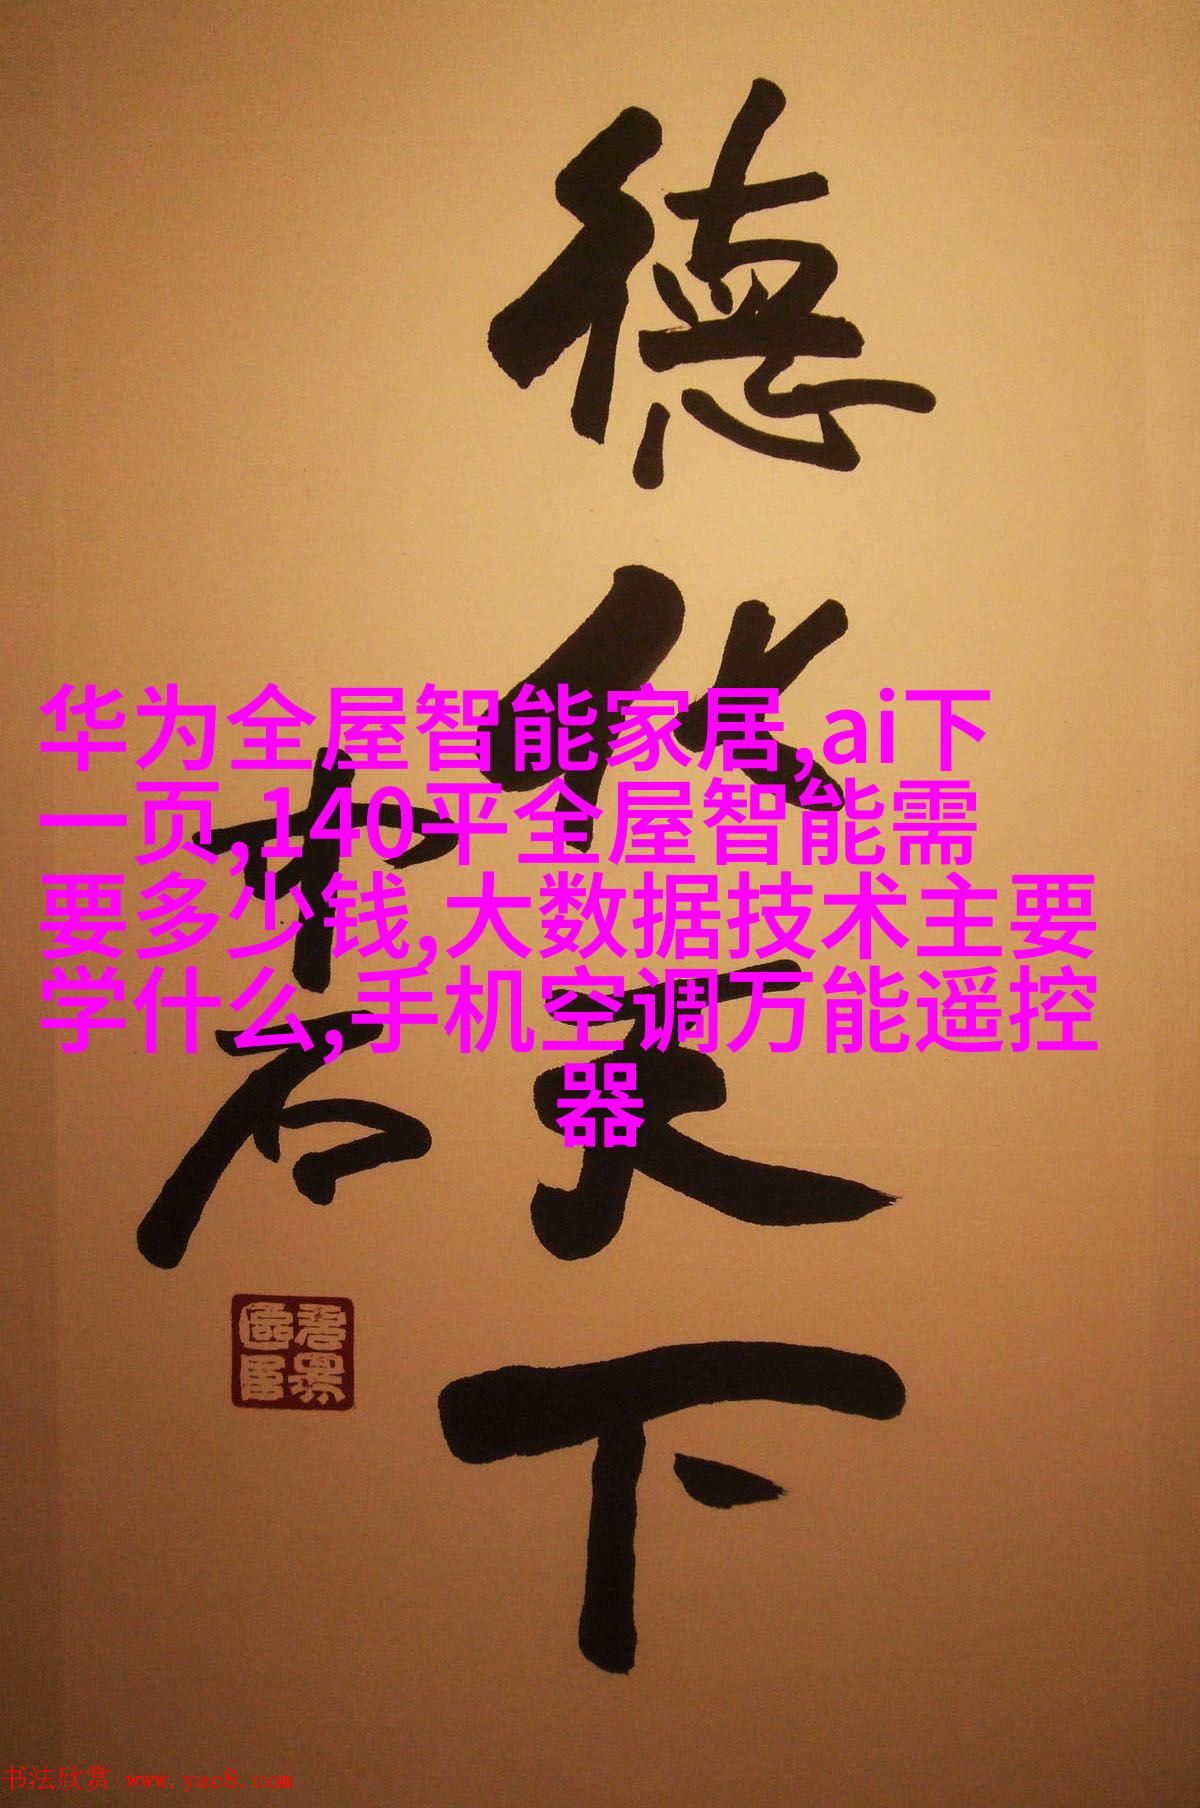 德化天下
木石
华为全屋智能家居,ai下
一页,140平全屋智能需
要多少钱,大数据技术主要
学什么,手机空调万能遥控
器
书法欣赏 www.yac8.com